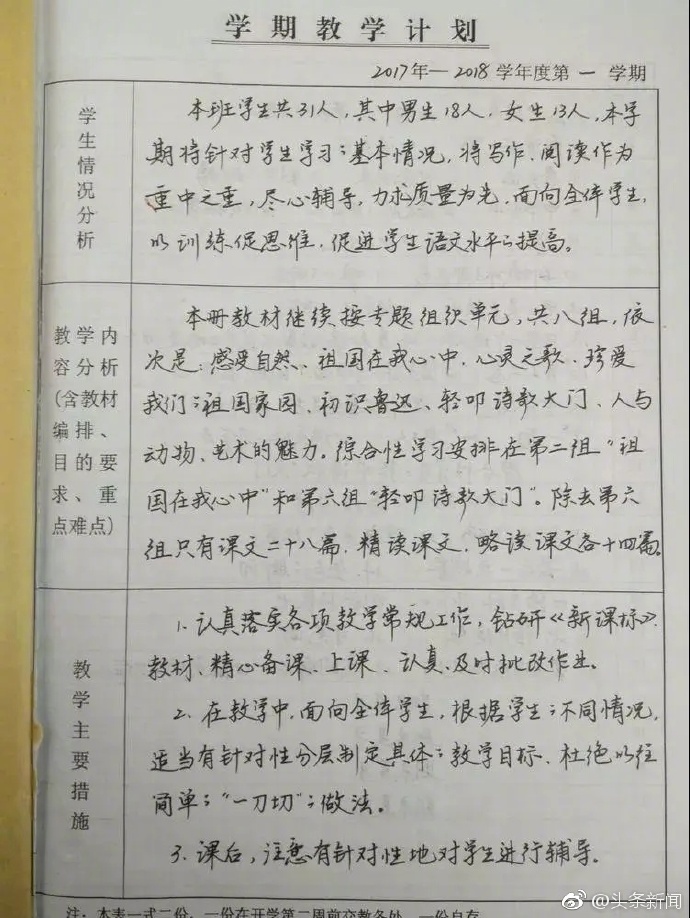 学期教学计划
2017年—2018学年度第一学期
学生情况分析
本班学生共31人，其中男生18人，女生13人，本学
期将针对学生学习的基本情况，将写作、阅读作为
重中之重，尽心辅导，力求质量为先，面向全体学生，
以训练促思维，促进学生语文水平的提高。
教学内
容分析
(含教材
编排、
目的要
求、重
点难点)
本册教材继续按专题组织单元，共八组，依
次是：感受自然、祖国在我心中、心灵之歌、珍爱
我们的祖国家园、初识鲁迅、轻叩诗歌大门、人与
动物、艺术的魅力。综合性学习安排在第二组“祖
国在我心中”和第六组“轻叩诗歌大门”。除去第六
组只有课文二十八篇，精读课文、略读课文各十四篇。
教学主要措施
1. 认真落实各项教学常规工作，钻研《新课标》、
教材、精心备课、上课、认真、及时批改作业。
2. 在教学中，面向全体学生，根据学生的不同情况，
适当有针对性分层制定具体的教学目标、杜绝以往
简单的“一刀切”的做法。
3. 课后，注意有针对性地对学生进行辅导。
注：本表一式二份，一份在开学第二周前交教务处，一份自存
@头条新闻